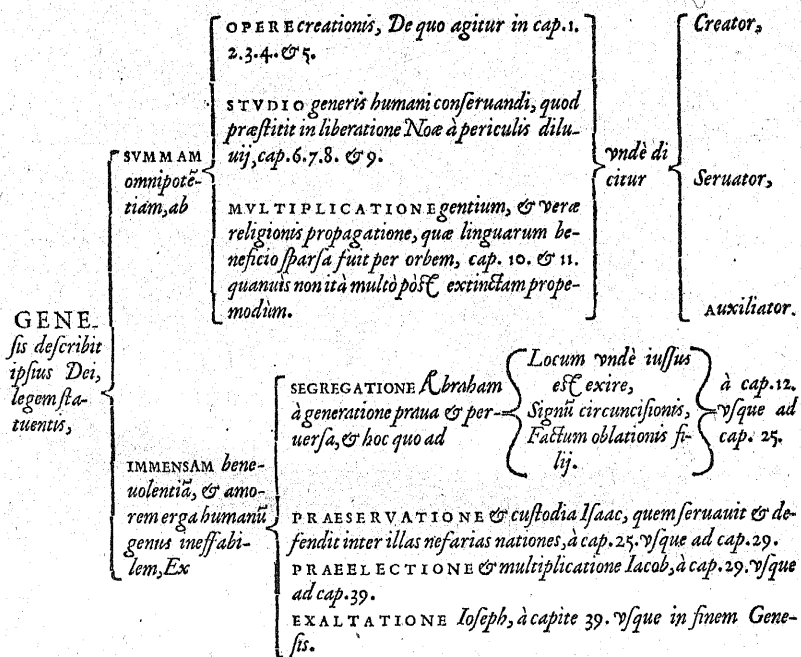 GENE-
ſis deſcribit
ipſius Dei,
legem ſta-
tuentis,
SVMMAM
omnipotẽ-
tiam, ab
OPERE creationis, De quo agitur in cap. 1.
2. 3. 4. & 5.
STVDIO generis humani conſeruandi, quod
præſtitit in liberatione Noæ à periculis dilu-
uij, cap. 6. 7. 8. & 9.
MVLTIPLICATIONE gentium, & veræ
religionis propagatione, quæ linguarum be-
neficio ſparſa fuit per orbem, cap. 10. & 11.
quanuis non ità multò pòſt extinctam prope-
modùm.
vndè di
citur
Creator,
Seruator,
Auxiliator.
IMMENSAM bene-
uolentiã, & amo-
rem erga humanũ
genus ineffabi-
lem, Ex
SEGREGATIONE Abraham
à generatione praua & per-
uerſa, & hoc quo ad
Locum vndè iuſſus
eſt exire,
Signũ circunciſionis,
Factum oblationis fi-
lij.
à cap. 12.
vſque ad
cap. 25.
PRAESERVATIONE & cuſtodia Iſaac, quem ſeruauit & de-
fendit inter illas nefarias nationes, à cap. 25. vſque ad cap. 29.
PRAEELECTIONE & multiplicatione Iacob, à cap. 29. vſque
ad cap. 39.
EXALTATIONE Ioſeph, à capite 39. vſque in finem Gene-
ſis.